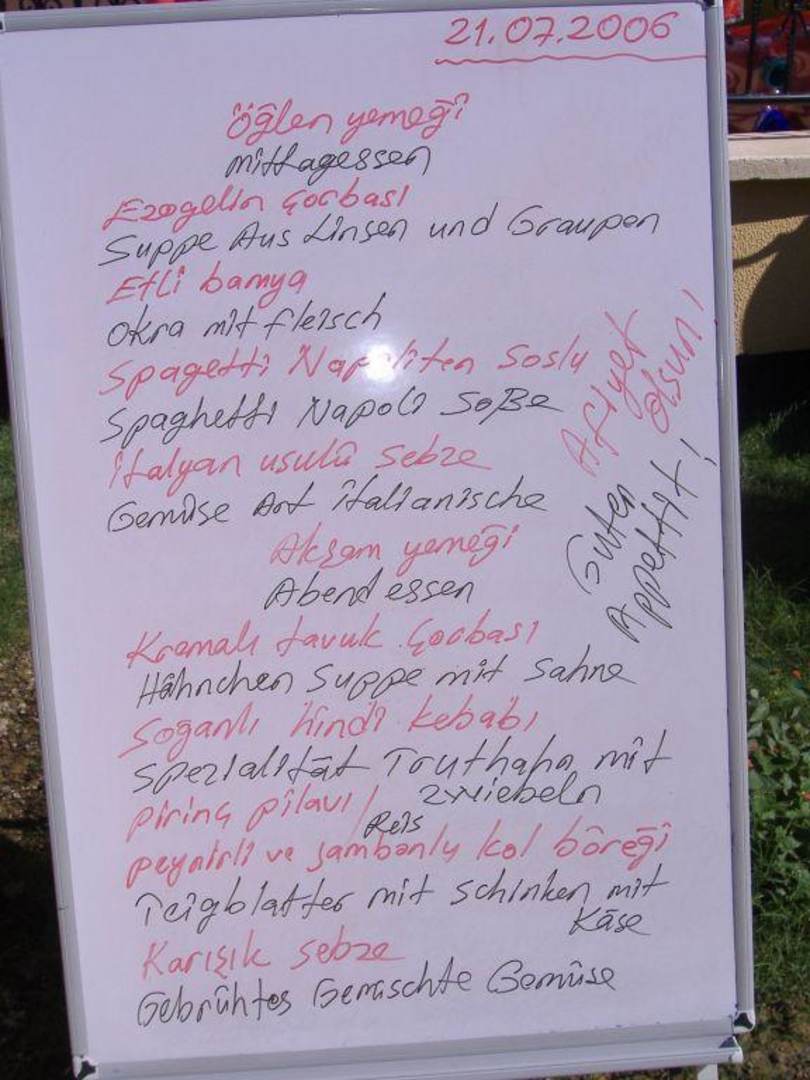 21.07.2006
Öğlen yemeği
mittagessen
Ezogelin Çorbası
Suppe Aus Linsen und Graupen
Etli bamya
Okra mit fleisch
Spagetti Napoliten Soslu
Spaghetti Napoli Soße
italyan usulü Sebze
Gemüse Art italianische
Afiyet
olsun!
Guten
Appettit!
Akşam yemeği
Abend essen
Kremalı tavuk Çorbası
Hähnchen Suppe mit Sahne
Soğanlı hindi kebabı
Spezialität Truthahn mit
Zwiebeln
pirinç pilavı / Reis
peynirli ve jambonlu kol böreği
Teigblatter mit schinken mit
Käse
Karışık sebze
Gebrühtes Gemischte Gemüse